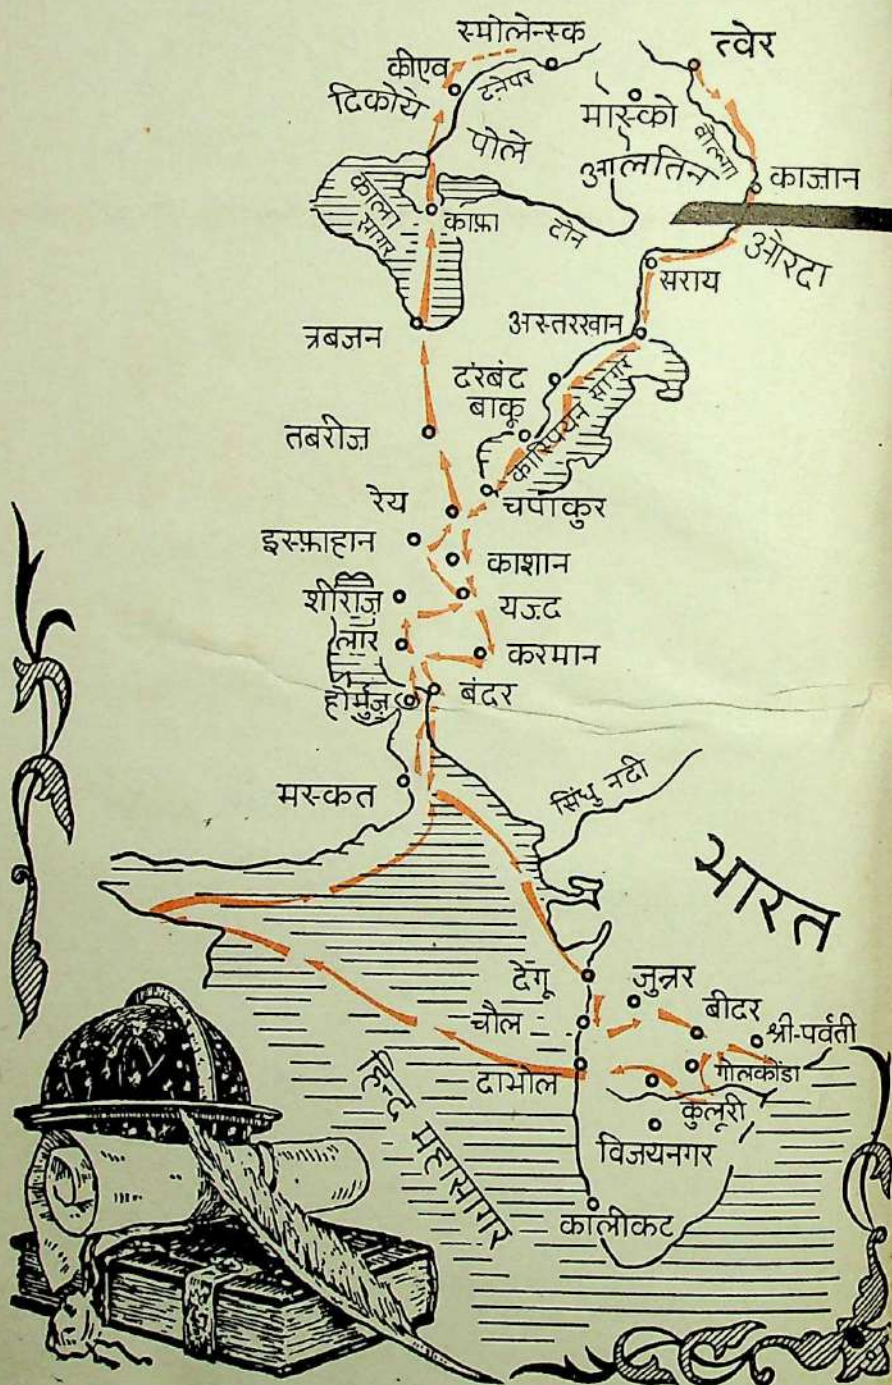 स्मोलेन्स्क
त्वेर
कीएव
दनेपर
दिकोये
मोस्को
पोले
वोल्गा
आलतिन
काज़ान
काला
सागर
काफ़ा
दोन
ओरदा
सराय
त्रबजन
अस्तरखान
दरबंद
बाकू
कास्पियन सागर
तबरीज़
रेय
चपाकुर
इस्फ़ाहान
काशान
शीराज़
यज़्द
लार
करमान
होर्मुज़
बंदर
मस्कत
सिंधु नदी
भारत
देगू
जुन्नर
चौल
बीदर
श्री-पर्वती
दाभोल
गोलकोंडा
कुलूरी
हिन्द महासागर
विजयनगर
कालीकट